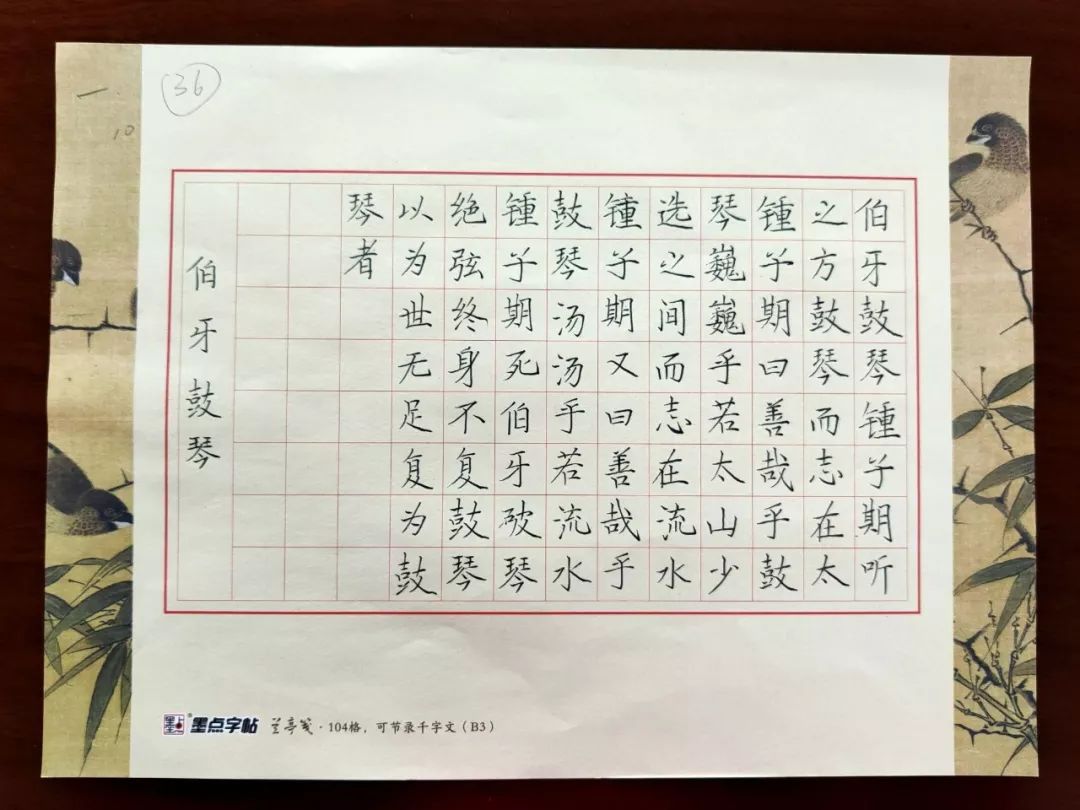 36
一.
10
伯牙鼓琴锺子期听
之方鼓琴而志在太
锺子期曰善哉乎鼓
琴巍巍乎若太山少
选之间而志在流水
锺子期又曰善哉乎
鼓琴汤汤乎若流水
锺子期死伯牙破琴
绝弦终身不复鼓琴
以为世无足复为鼓
琴者
伯牙鼓琴
墨点 ®墨点字帖 兰亭笺·104格，可节录千字文（B3）